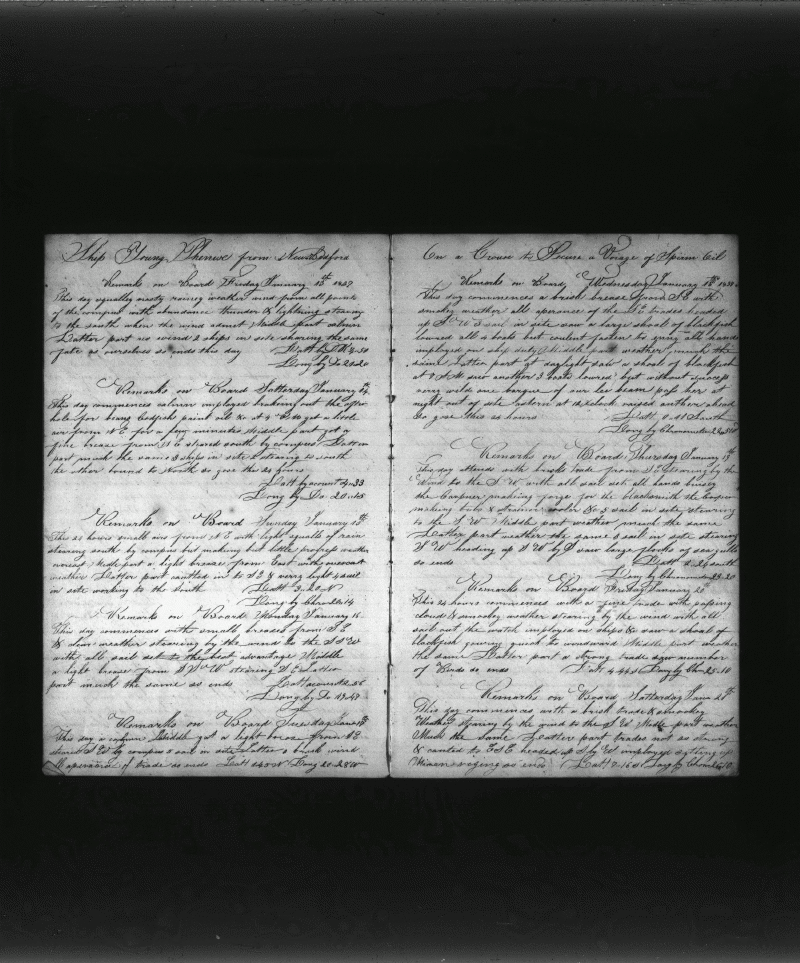 Ship Young Phenix from New Bedford
Remarks on Board Friday January 13th
This day squally nasty rainey weather wind from all points
of the compas with abundance thunder & lightning steering
to the south when the wind admit Middle part calmer
Latter part no wind 2 ships in site sharing the same
fate as ourselves so ends this day Latt by
Long by Do 20.20
Remarks on Board Satterday January 14
This day commences calmer employed braking out the after
hole for heavy paint oil &c at 3 got a little
air from N E for a few minutes Middle part got a
fine brease from N E steared south by compas Latter
part much the same 3 ships in site 2 stearing to south
the other bound to North so goes the 24 hours
Latt by account 4.33
Long by Do 20.15
Remarks on Board Sunday January 15th
This 24 hours small airs from N E with light squalls of rain
stearing south by compas but making but little progress weather
Midd part a light breese from East with
weather Latter part canted in to S E & verry light 4 sail
in site working to the South Latt 3.20 N
Long by Chro
Remarks on Board Monday January 16
This day commences with small breases from S E
& clear weather stearing by the wind to the S S W
with all sail set to the best advantage Middle
a light breese from stearing S E Latter
part much the same so ends Latt account
Long by Do 19.47
Remarks on Board Tuesday Janu 17th
This day a calm Middle got a light brease from
by compas 2 sail in site Latter a brisk wind
apperance of trade so ends Latt N Long 20.28 W
On a Cruse to Procure a Voyage of Sperm Oil
Remarks on Board Wednesday January 18th
This day commences a brisk brease from S E with
smokey weather all aperance of the S E trades headed
up S W 3 sail in site saw a large shoal of blackfish
lowred all 4 boats but couldent fasten to anny all hands
imployed on ship duty Middle part weather much the
same Latter part at daylight saw a shoal of blackfish
at 7 A M see another 3 boats lowred but without success
verry wild one barque of our lee beam pass her at
night out of site astern at 12 oclock raised another ahead
so goes this 24 hours Latt South
Long by Chronometer
Remarks on Board Thursday January 19th
This day attends with brisk trade from S E stearing by the
wind to the S W with all sail set all hands bussey
the Carpner making forge for the blacksmith the Cooper
making tubs & strainer cooler &c 5 sail in site stearing
to the S W Middle part weather much the same
Latter part weather the same 2 sail in site stearing
S W heading up S W by S saw large flocks of sea gulls
so ends Latt 2.24 South
Long by Chronometer 23.20
Remarks on Board Friday January 20th
This 24 hours commences with a fine trade with passing
cloud & smokey weather stearing by the wind with all
sail out the watch imployed on ships & saw a shoal of
blackfish gowing quick to windward Middle part weather
the same Latter part a strong trade saw number
of Birds so ends Latt 4.44 S Long by Chr 25.10
Remarks on Board Satterday Janu 21th
This day commences with a brisk trade & smokey
Weather stearing by the wind to the S W Midde part weather
Much the same Latter part trades not so strong
& canted to E S E headed up S by W imployed
Mizen so ends Latt Long by Chron